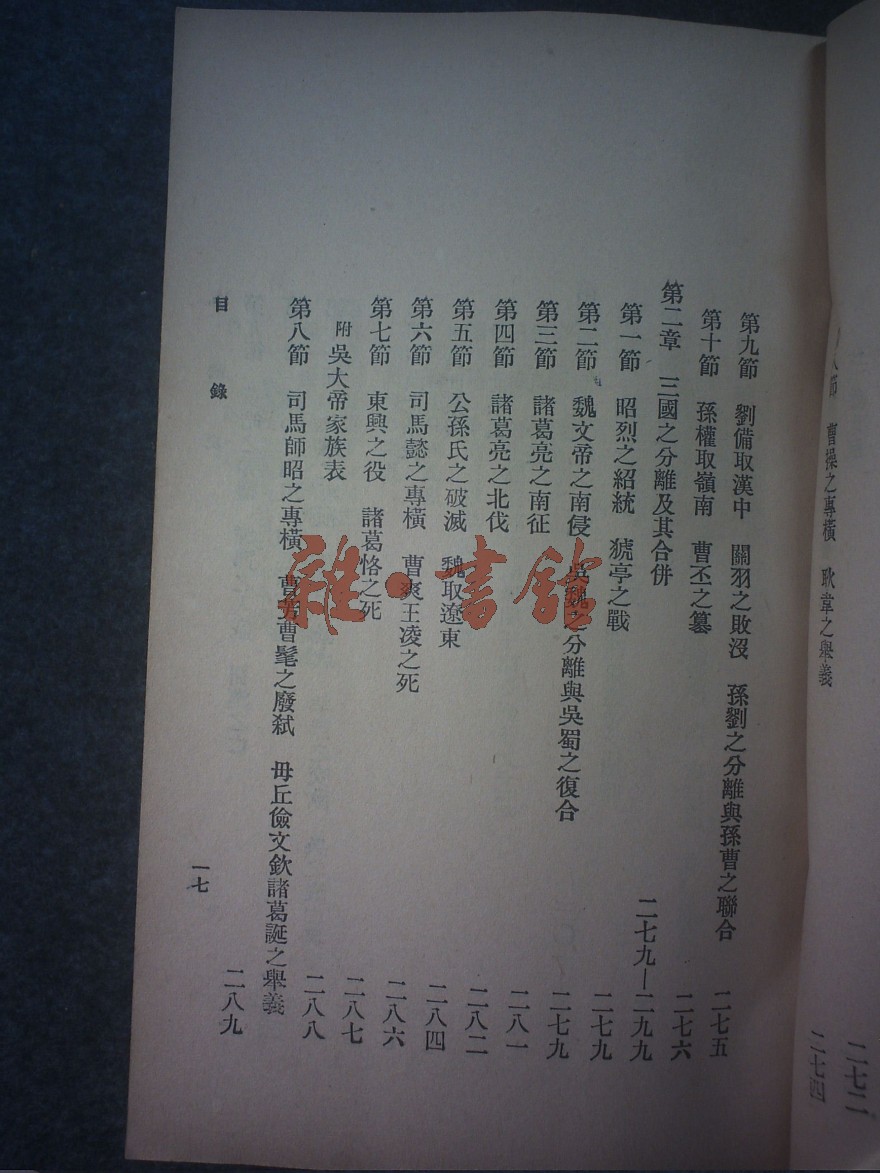 八節 曹操之專橫 耿韋之舉義
二七二
二七四
第九節 劉備取漢中 關羽之敗沒 孫劉之分離與孫曹之聯合 二七五
第十節 孫權取嶺南 曹丕之篡 二七六
第二章 三國之分離及其合併 二七九—二九九
第一節 昭烈之紹統 猇亭之戰 二七九
第二節 魏文帝之南侵 吳魏之分離與吳蜀之復合 二七九
第三節 諸葛亮之南征 二八一
第四節 諸葛亮之北伐 二八二
第五節 公孫氏之破滅 魏取遼東 二八四
第六節 司馬懿之專橫 曹爽王凌之死 二八六
第七節 東興之役 諸葛恪之死 二八七
附 吳大帝家族表 二八八
第八節 司馬師昭之專橫 曹芳曹髦之廢弒 毋丘儉文欽諸葛誕之舉義 二八九
目錄
一七
雜·書館